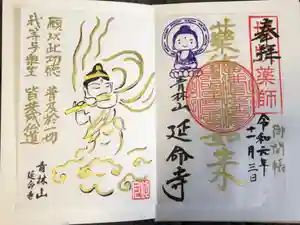 奉拝
薬師
薬師如来
青林山
延命寺
御開帳
令和六年
十一月三日
願以此功徳 普及於一切
我等与衆生 皆共成仏道
青林山
延命寺